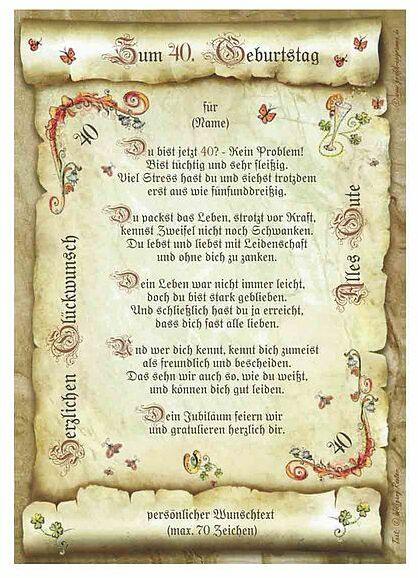 Zum 40. Geburtstag
für
(Name)
40
Du bist jetzt 40? - Kein Problem!
Bist tüchtig und sehr fleißig.
Viel Stress hast du und siehst trotzdem
erst aus wie fünfunddreißig.
Du packst das Leben, strotzt vor Kraft,
kennst Zweifel nicht noch Schwanken.
Du lebst und liebst mit Leidenschaft
und ohne dich zu zanken.
Dein Leben war nicht immer leicht,
doch du bist stark geblieben.
Und schließlich hast du ja erreicht,
dass dich fast alle lieben.
Und wer dich kennt, kennt dich zumeist
als freundlich und bescheiden.
Das sehn wir auch so, wie du weißt,
und können dich gut leiden.
Dein Jubiläum feiern wir
und gratulieren herzlich dir.
Herzlichen Glückwunsch
Alles Gute
40
persönlicher Wunschtext
(max. 70 Zeichen)